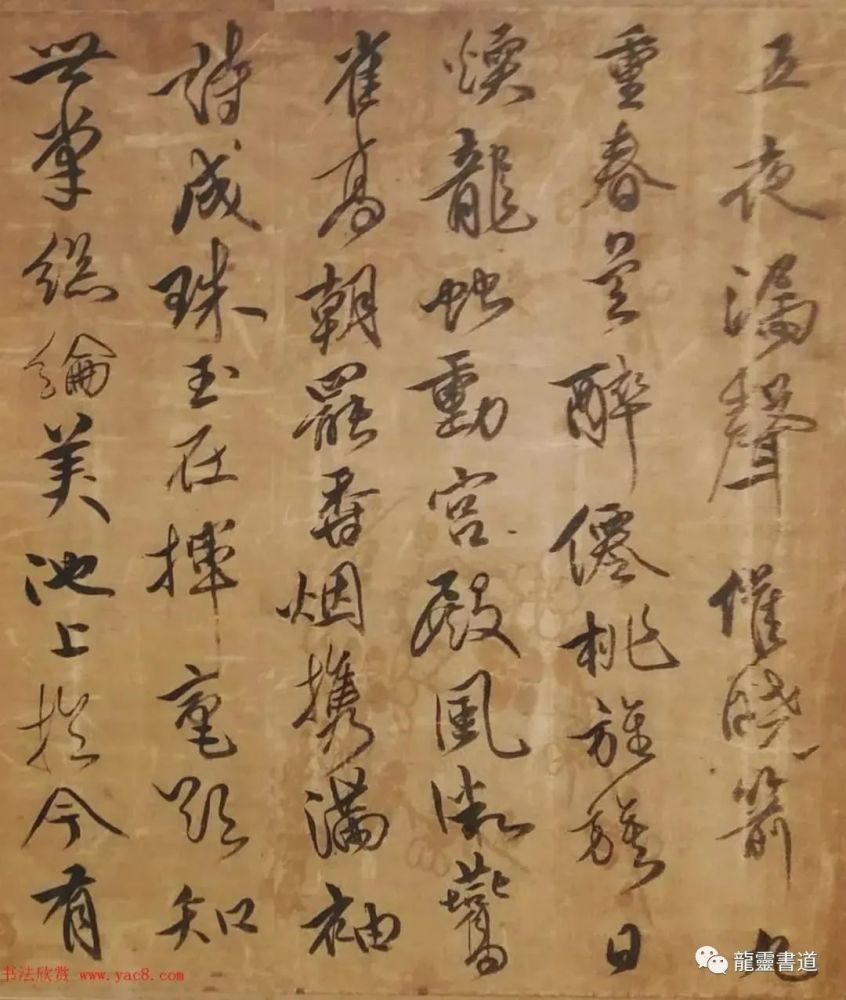 五夜漏聲催曉箭九
重春色醉僊桃旌旗日
煗龍蛇動宮殿風微鷰
雀高朝罷香烟携滿袖
詩成珠玉在揮毫欲知
世掌絲綸美池上於今有
书法欣赏 www.yac8.com
龍靈書道